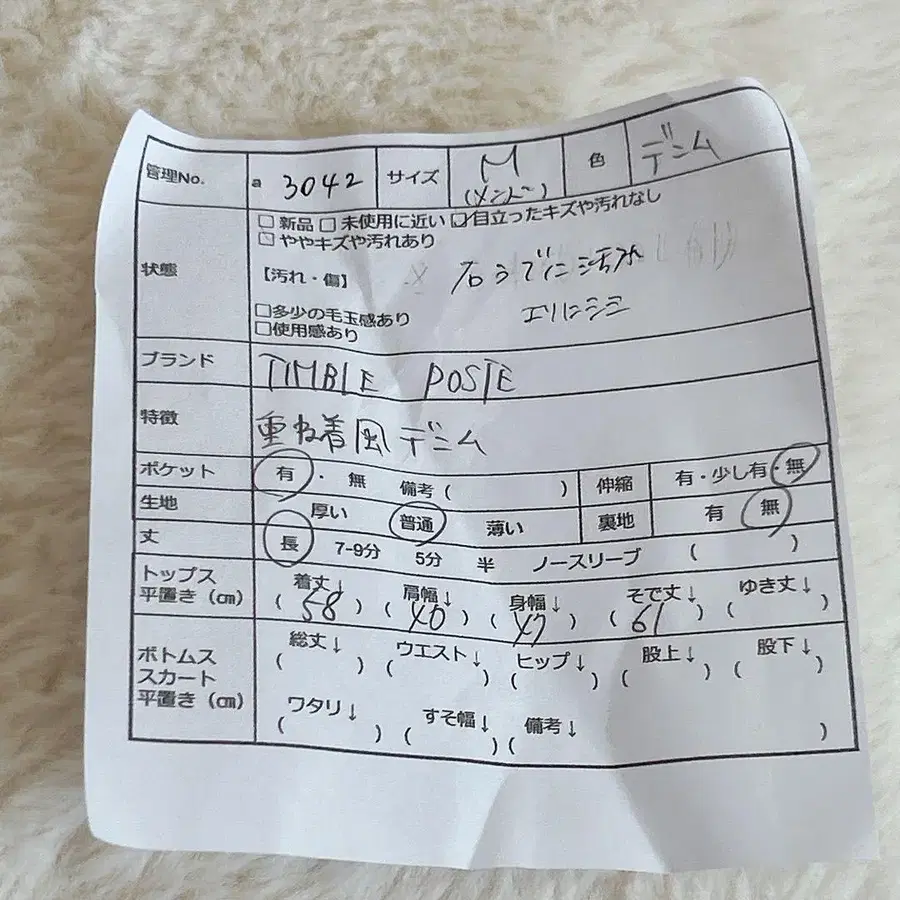 管理No. a 3042 サイズ M (メンズ) 色 デニム
状態 □新品 □未使用に近い □目立ったキズや汚れなし
□ややキズや汚れあり
【汚れ・傷】 右うでに汚れ
エリにシミ
□多少の毛玉感あり
□使用感あり
ブランド TIMBLE POSTE
特徴 重ね着風デニム
ポケット 有・無 備考( ) 伸縮 有・少し有・無
生地 厚い 普通 薄い 裏地 有 無
丈 長 7-9分 5分 半 ノースリーブ ( )
トップス 平置き(cm) 着丈↓ 肩幅↓ 身幅↓ そで丈↓ ゆき丈↓
(58) (40) (47) (61) ( )
ボトムス スカート 平置き(cm) 総丈↓ ウエスト↓ ヒップ↓ 股上↓ 股下↓
( ) ( ) ( ) ( ) ( )
ワタリ↓ すそ幅↓ 備考↓
( ) ( ) ( )